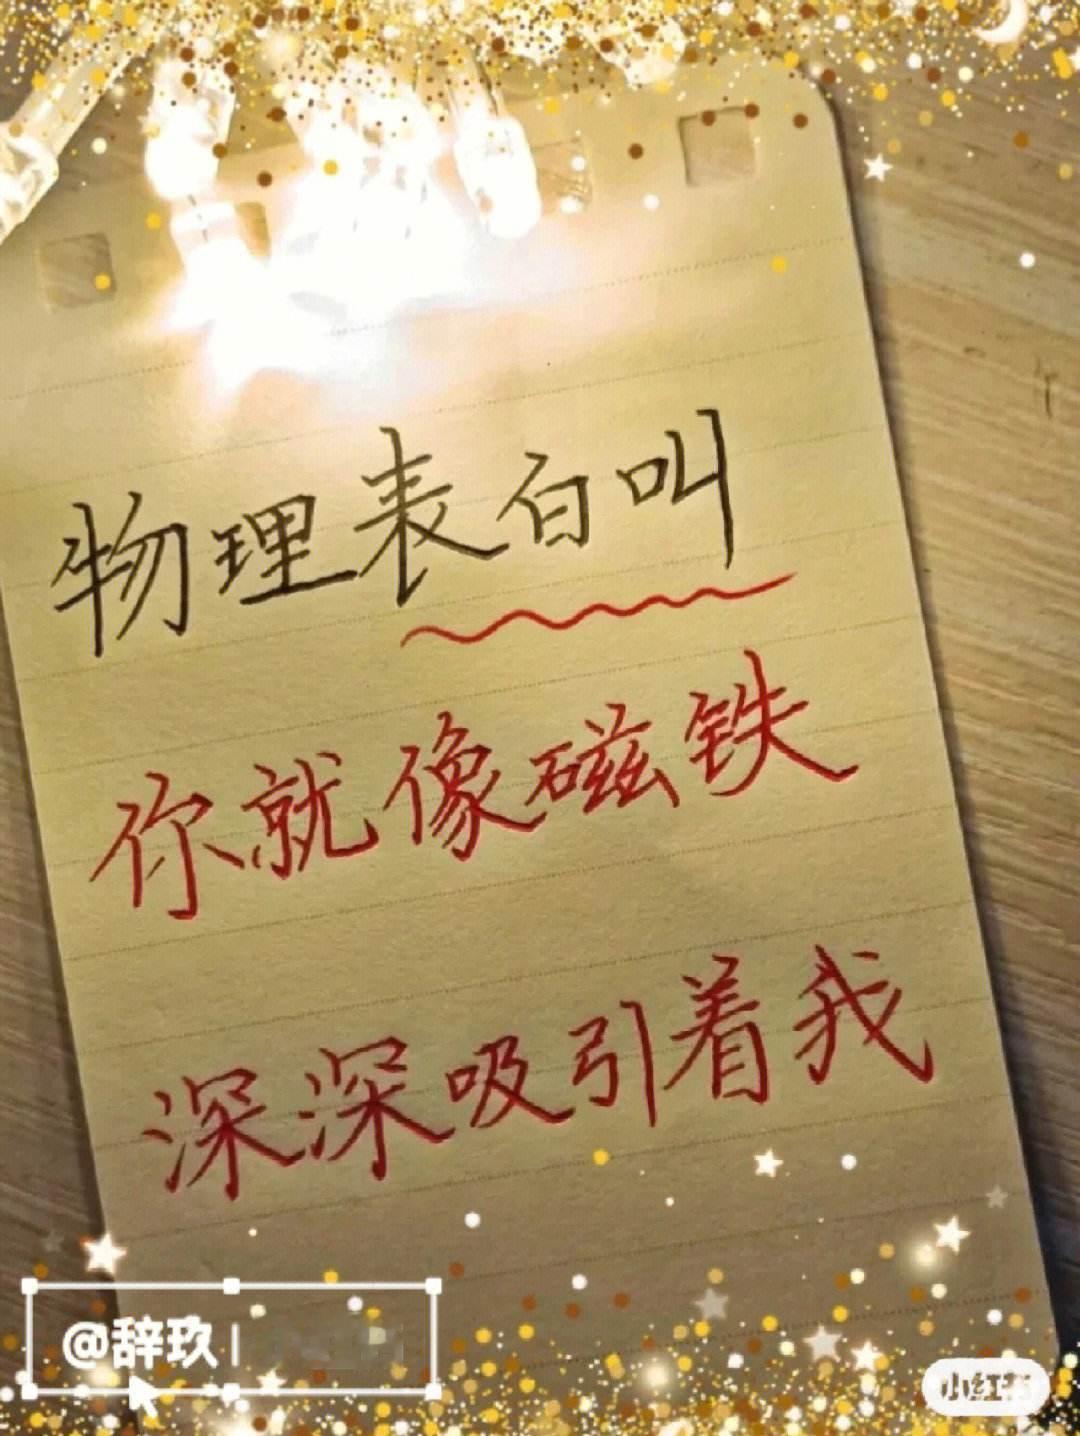 物理表白叫
你就像磁铁
深深吸引着我
@辞玖|
小红书